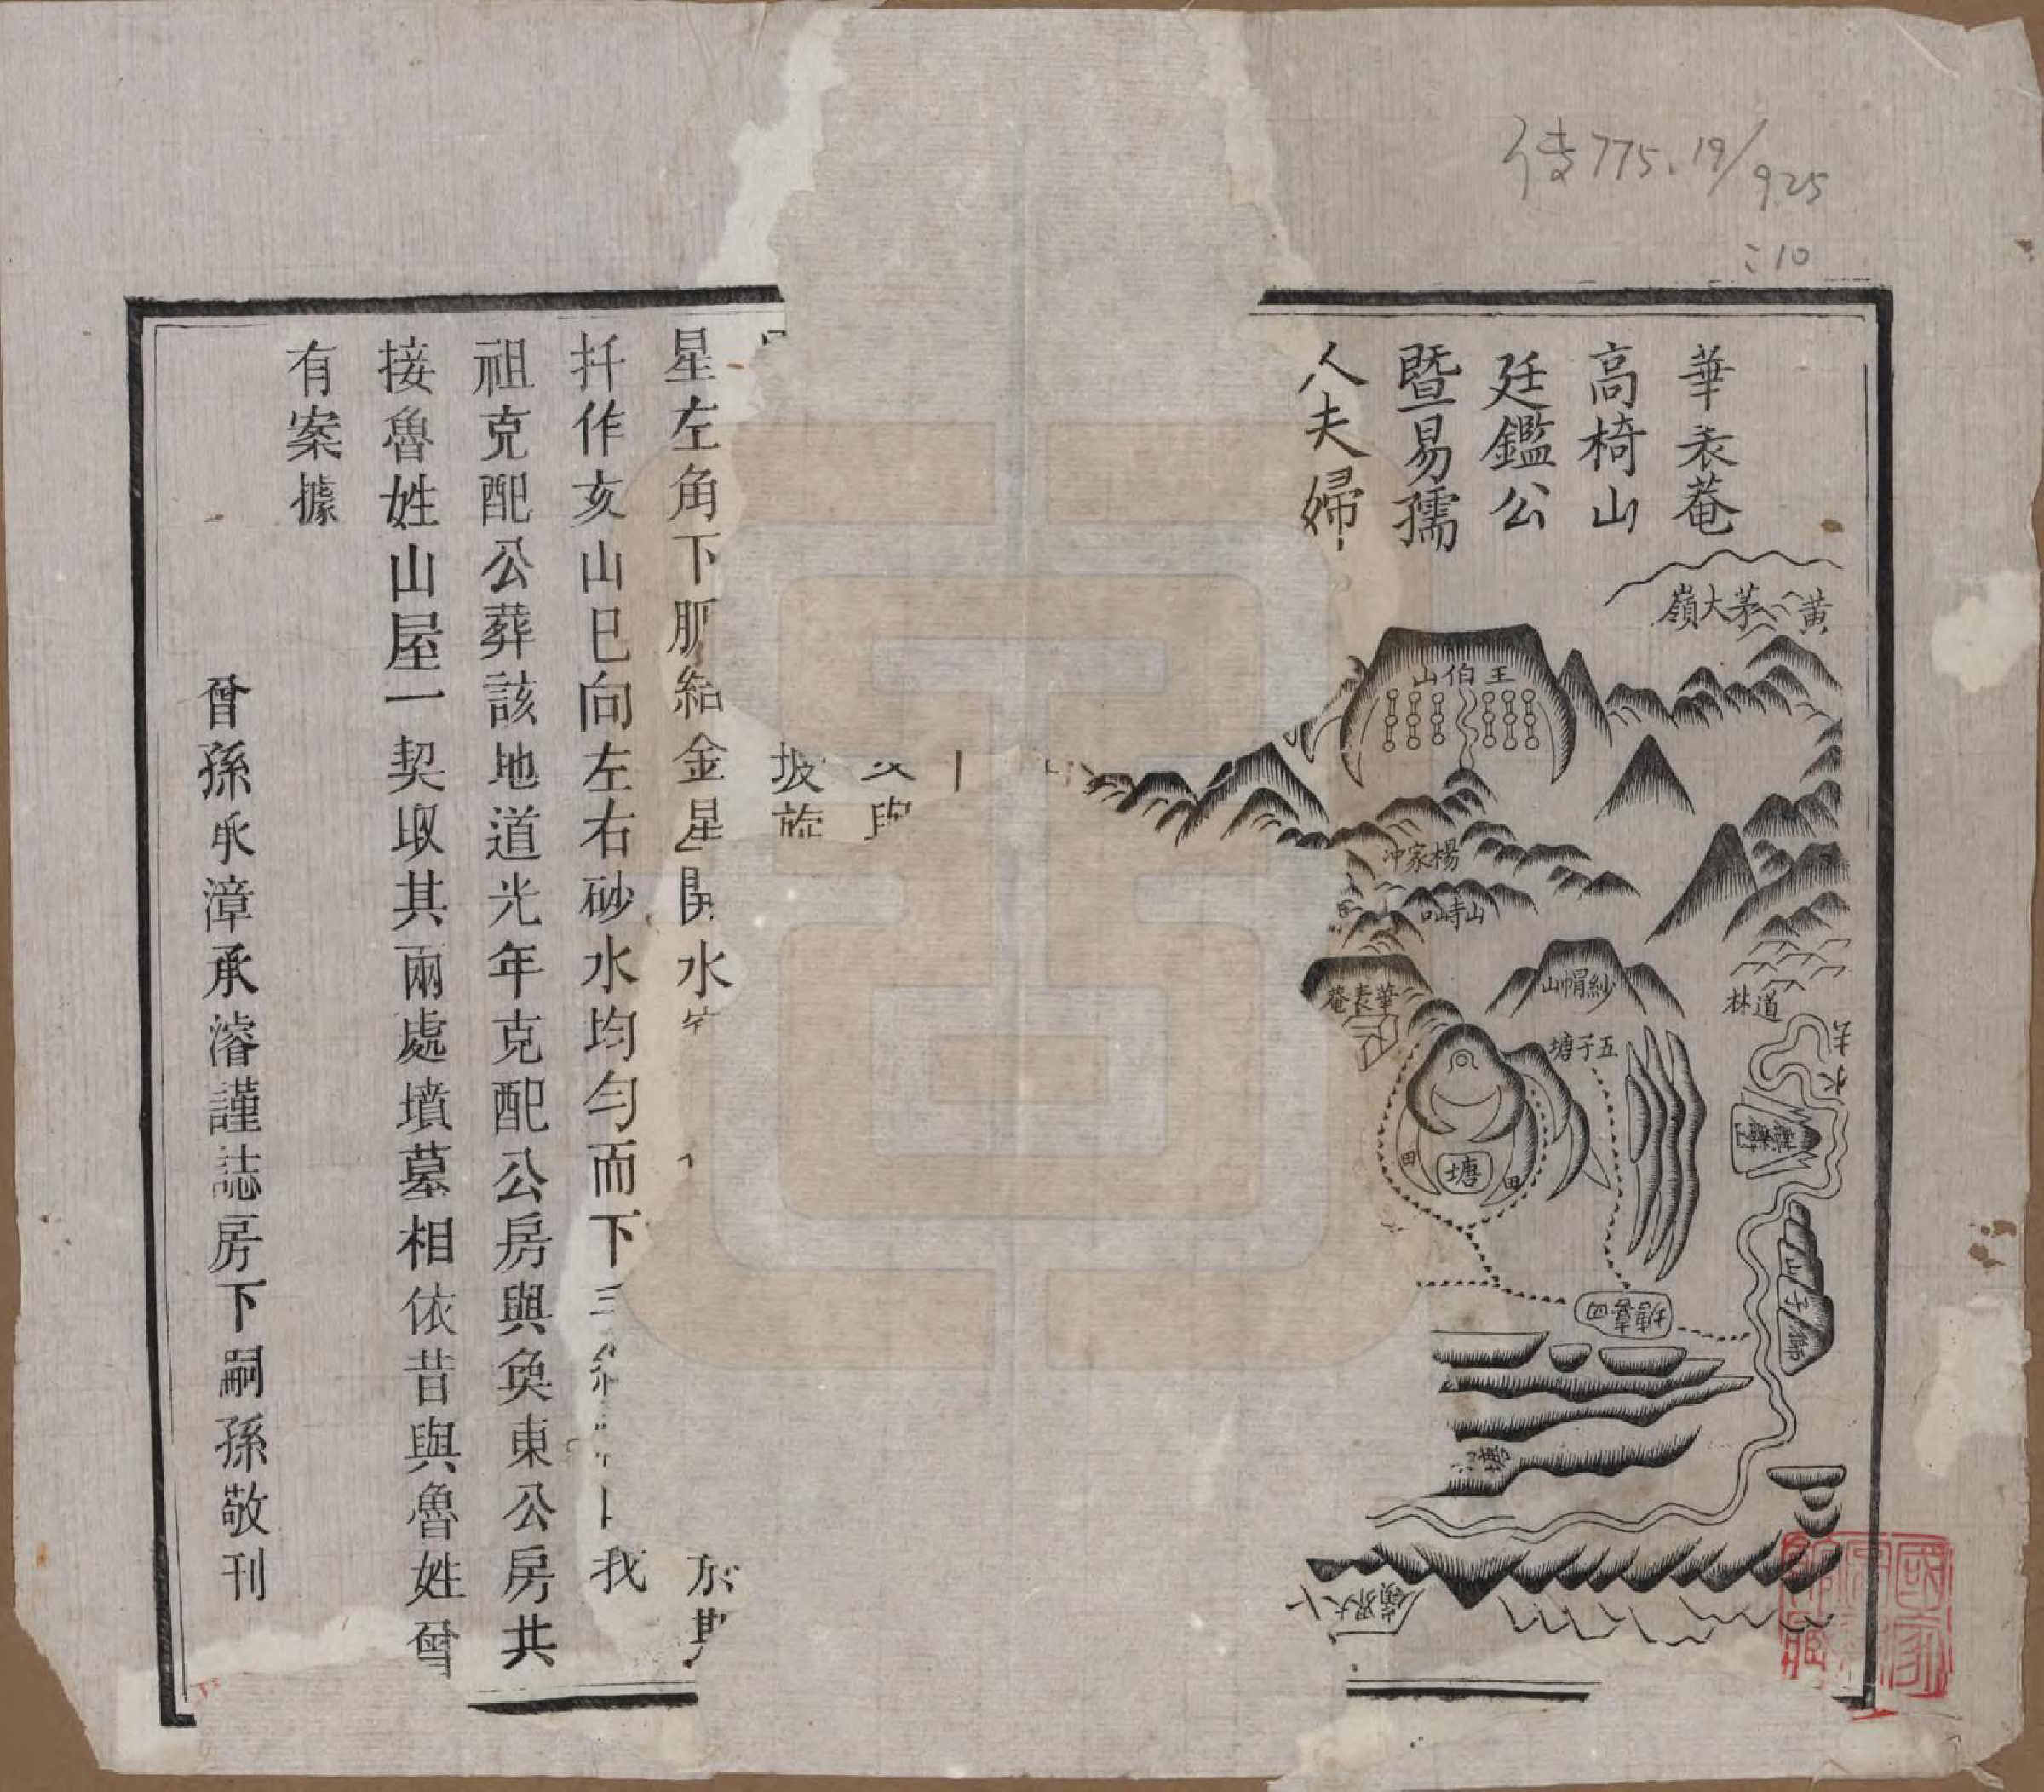 傳775.19/925
:10
華表菴
高椅山
廷鑑公
暨易孺
人夫婦
黃茅大嶺
王伯山
楊家冲
山峙
華表菴
紗帽山
道林
五子塘
去水
塘
田
田
四暮塘
獅子山
坡旋
星左角下脈結金星開水
扦作亥山巳向左右砂水均勻而下三我
祖克配公葬該地道光年克配公房與奐東公房共
接魯姓山屋一契取其兩處墳墓相依昔與魯姓曾
有案據
曾孫承漳承濬謹誌房下嗣孫敬刊